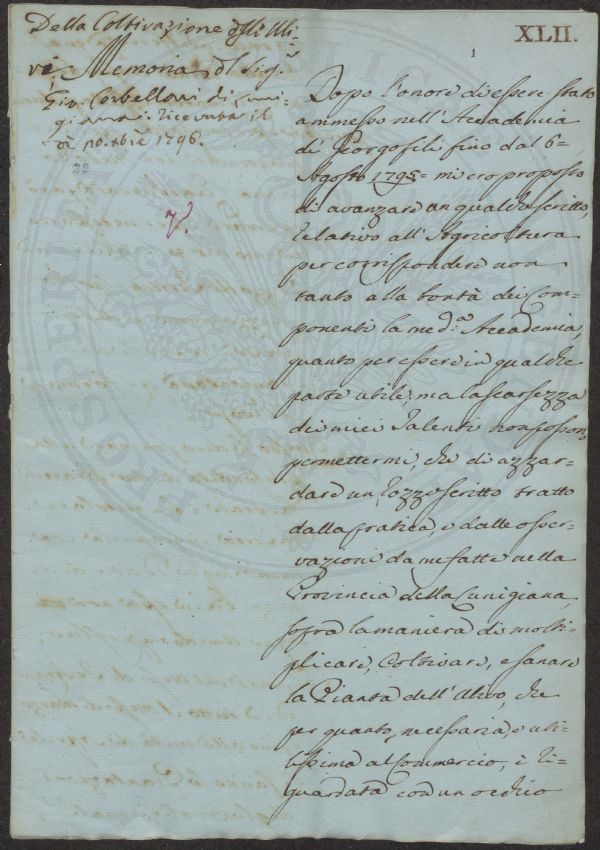 Della Coltivazione degli Uli=
vi, Memoria del Sig.
Gio. Corbelloni di Luni-
giana. ricevuta il
9bre 1796.
XLII.
1
Dopo l'onore di essere stato
ammesso nell'Accademia
di Georgofili fino dal 6=
Agosto 1795= mi ero proposto
di avanzare un qualche scritto,
relativo all'Agricoltura
per corrispondere non
tanto alla bontà dei Com=
ponenti la med.a Accademia,
quanto per essere in qualche
parte utile; ma la scarsezza
dei miei Talenti non posson
permettermi, che di azzar=
dare un rozzo scritto tratto
dalla pratica, e dalle osser=
vazioni da me fatte nella
Provincia della Lunigiana,
sopra la maniera di molti=
plicare, Coltivare, e sanare
la Pianta dell'Ulivo, che
per quanto, necessaria, e uti=
lissima al Commercio, è ri=
guardata con un occhio
PROSPERITÀ
PUBLICA